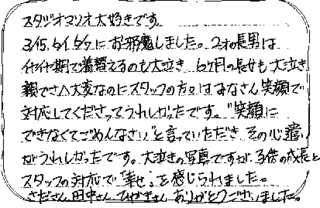 スタジオマリオ大好きです。
3/5、6/6、9/7にお邪魔しました。2才の長男は
イヤイヤ期で着替えるのも大泣き 6ヶ月の長女も大泣き
親でさえ大変なのにスタッフの方々はみなさん笑顔で
対応してくださってうれしかったです。"笑顔に
できなくてごめんなさい"と言っていただき その心遣い
がうれしかったです。大泣きの写真ですが、子供の成長と
スタッフの対応で"幸せ"を感じられました。
田中さん ありがとうございました。